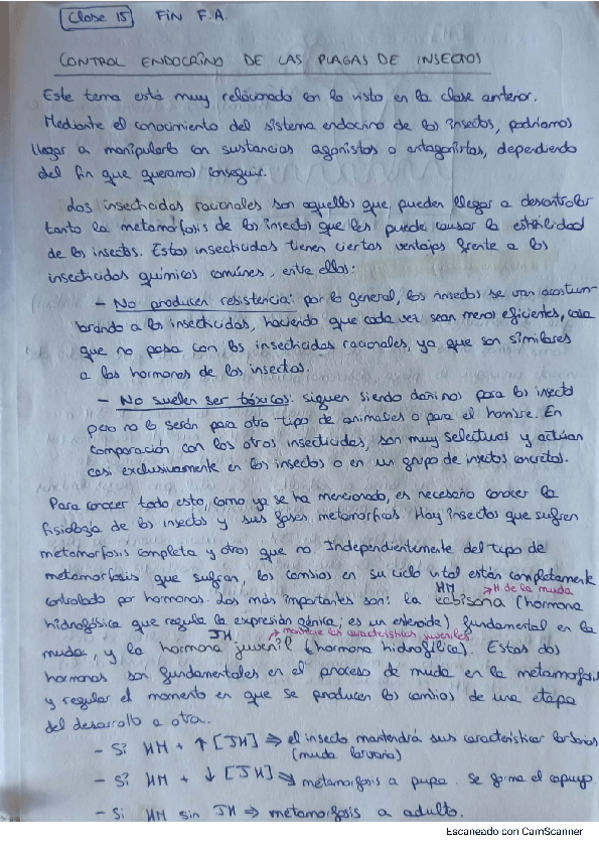 Clase 15 FIN F.A.
CONTROL ENDOCRINO DE LAS PLAGAS DE INSECTOS
Este tema está muy relacionado con lo visto en la clase anterior.
Mediante el conocimiento del sistema endocrino de los insectos, podríamos
llegar a manipularlo con sustancias agonistas o antagonistas, dependiendo
del fin que queramos conseguir.
Los insecticidas racionales son aquellos que pueden llegar a descontrolar
tanto la metamorfosis de los insectos que les puede causar la esterilidad
de los insectos. Estos insecticidas tienen ciertas ventajas frente a los
insecticidas químicos comúnes, entre ellas:
- No producen resistencia: por lo general, los insectos se van acostum-
brando a los insecticidas, haciendo que cada vez sean menos eficientes, cosa
que no pasa con los insecticidas racionales, ya que son similares
a las hormonas de los insectos.
- No suelen ser tóxicos: siguen siendo dañinos para los insectos
pero no lo serán para otro tipo de animales o para el hombre. En
comparación con los otros insecticidas, son muy selectivos y actúan
casi exclusivamente en los insectos o en un grupo de insectos concretos.
Para conocer todo esto, como ya se ha mencionado, es necesario conocer la
fisiología de los insectos y sus fases metamórficas. Hay insectos que sufren
metamorfosis completa y otros que no. Independientemente del tipo de
metamorfosis que sufran, los cambios en su ciclo vital están completamente
HM → H de la muda
controlado por hormonas. Las más importantes son: la ecdisona (hormona
hidrofóbica que regula la expresión génica; es un esteroide) fundamental en la
JH → mantiene las características juveniles
muda, y la hormona juvenil (hormona hidrofílica). Estas dos
hormonas son fundamentales en el proceso de muda en la metamorfosis
y regular el momento en que se producen los cambios de una etapa
del desarrollo a otra.
- Si HM + ↑ [JH] ⇒ el insecto mantendrá sus características larvarias
(muda larvaria)
- Si HM + ↓ [JH] ⇒ metamorfosis a pupa. Se forma el capuyo.
- Si HM sin JH ⇒ metamorfosis a adulto.
Escaneado con CamScanner